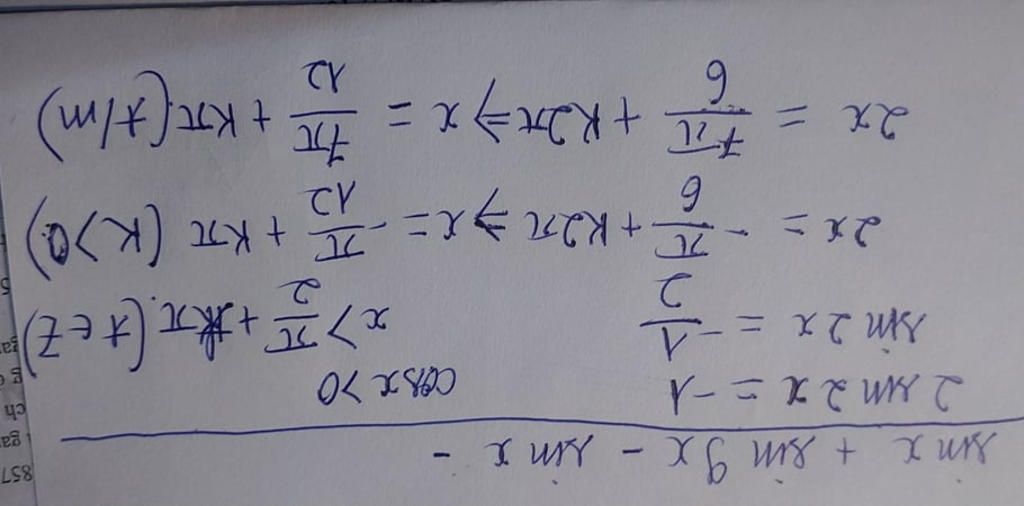 sin x + sin 9x - sin x -
2 sin 2x = -1 cos x > 0
sin 2x = -1/2 x > π/2 + kπ. (t ∈ Z)
2x = -π/6 + k2π ⇒ x = -π/12 + kπ (k>0)
2x = 7π/6 + k2π ⇒ x = 7π/12 + kπ. (t/m)
857